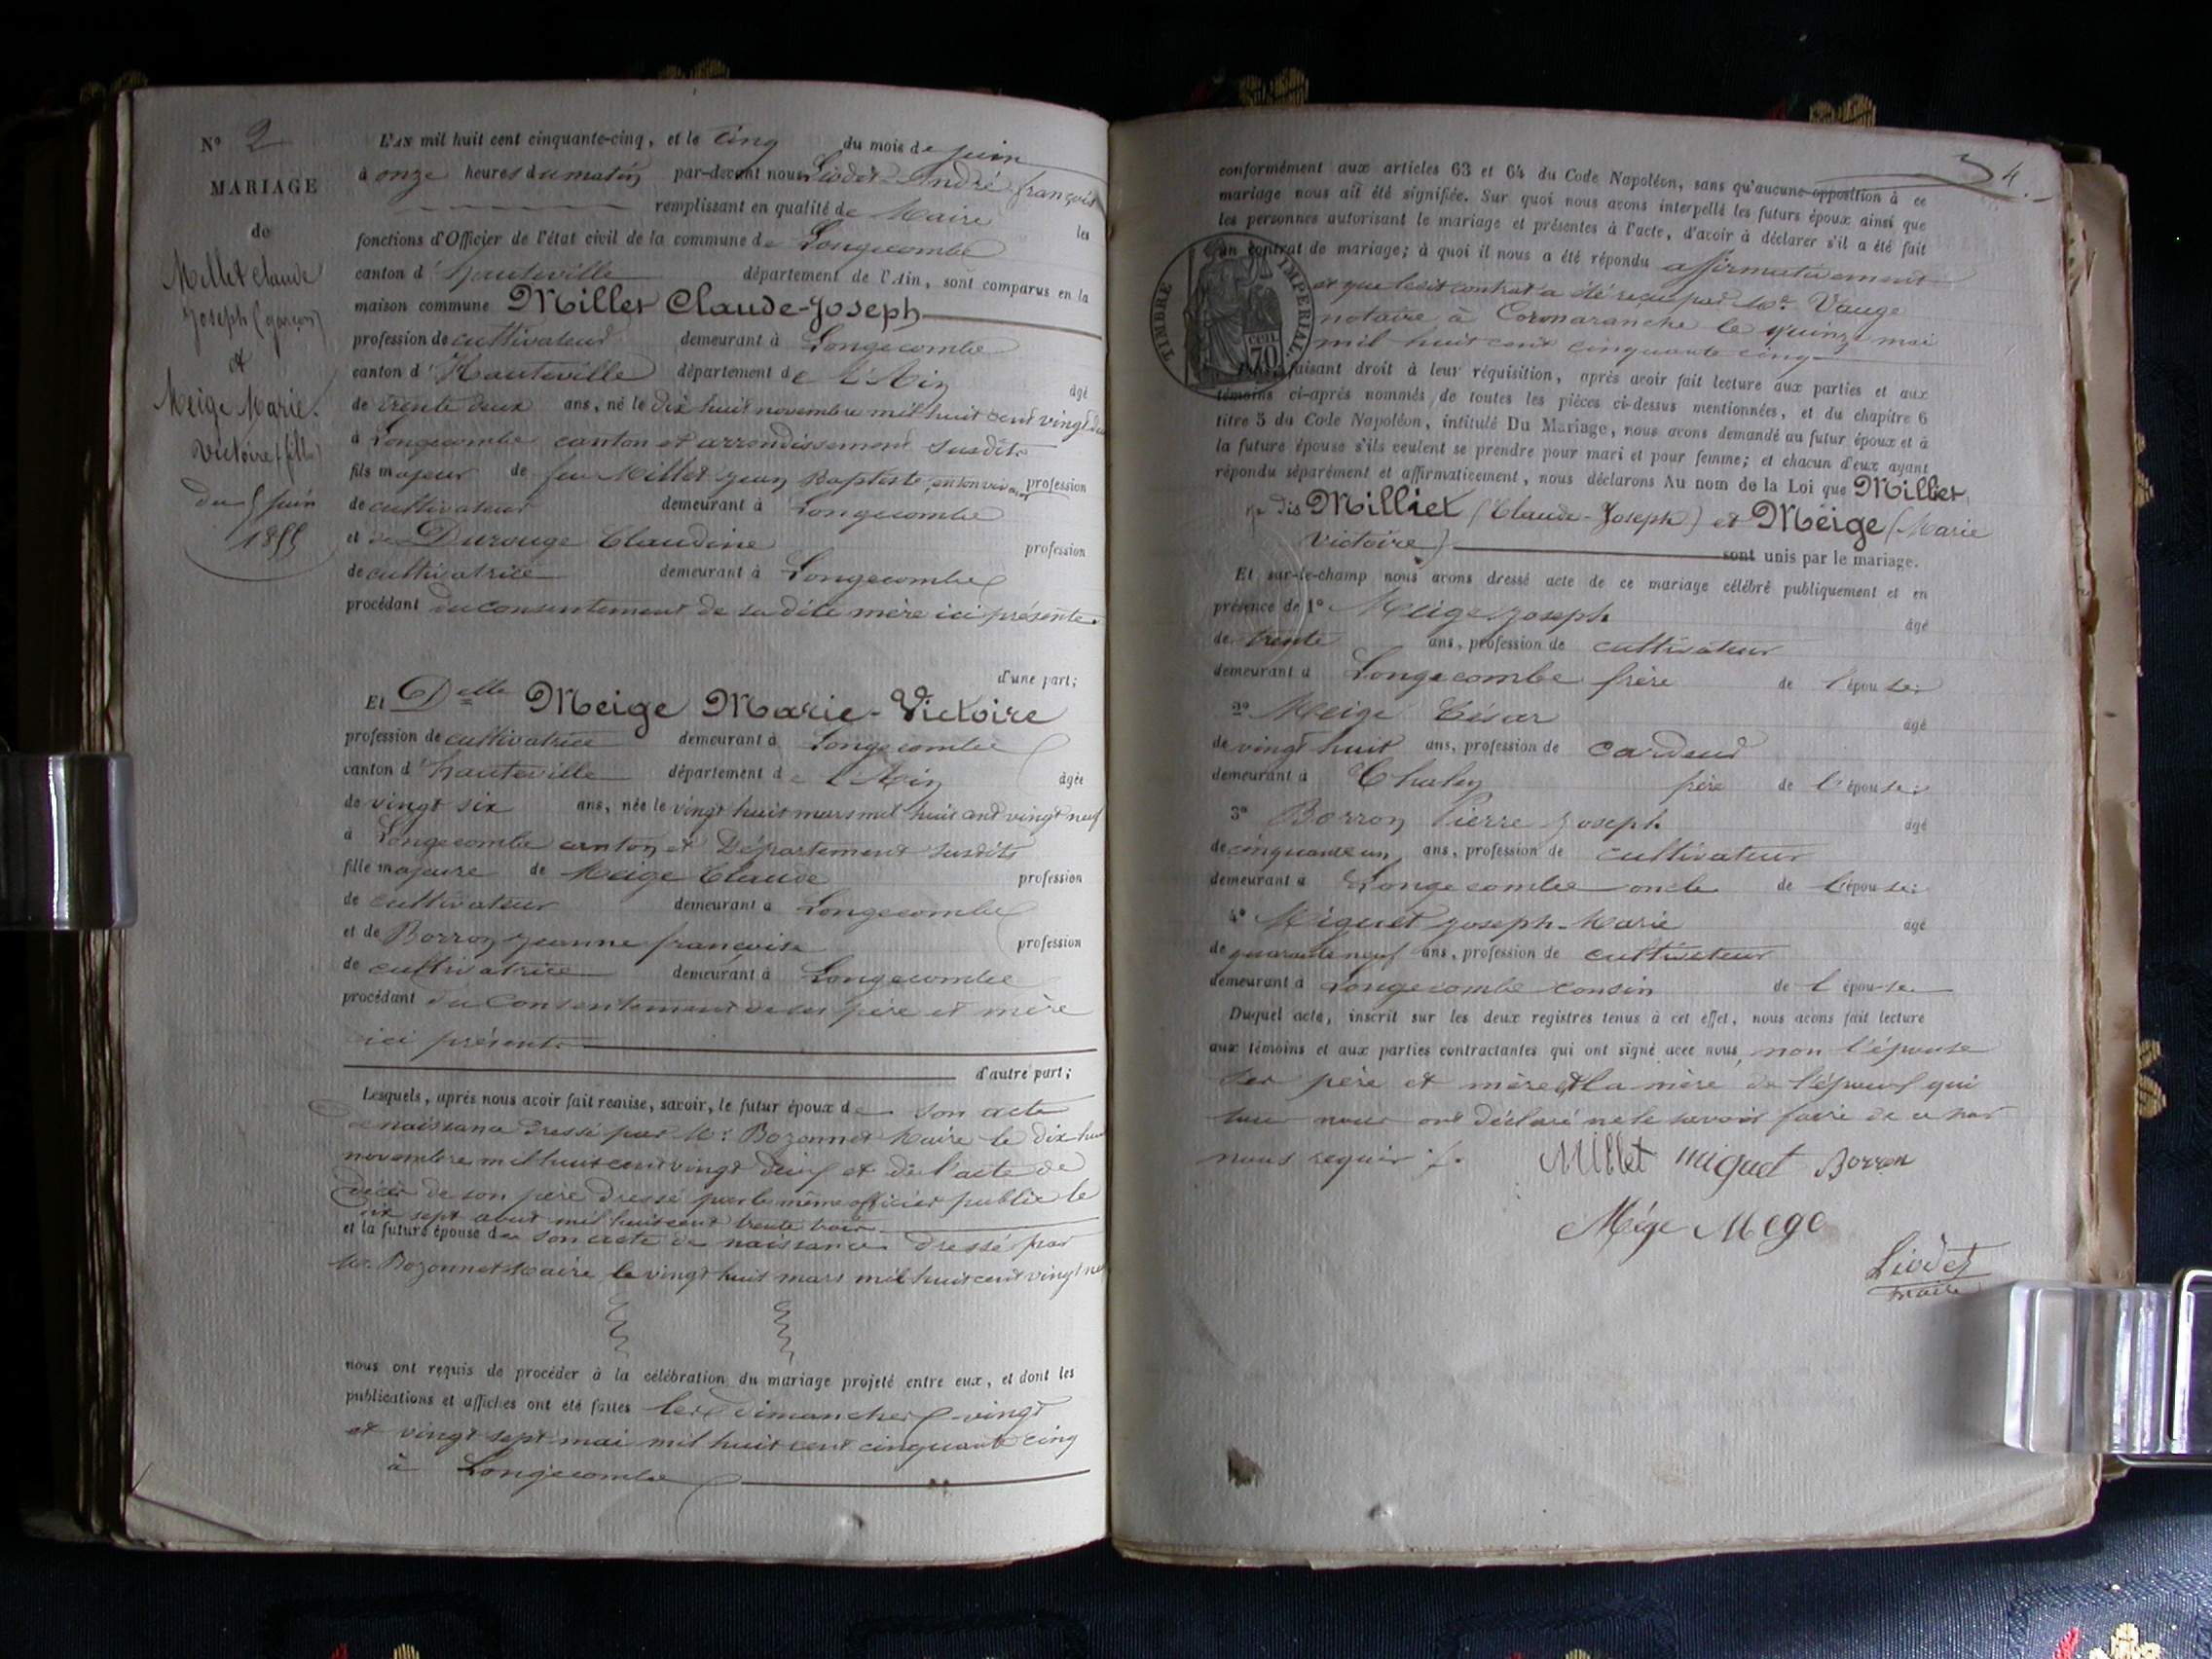 N° 2
MARIAGE
de
Millet Claude
Joseph (garçon)
et
Meige Marie
Victoire (fille)
du 5 juin
1855
L'AN mil huit cent cinquante-cinq, et le cinq du mois de juin
à onze heures du matin par-devant nous Liodet André françois
remplissant en qualité de Maire les
fonctions d'Officier de l'état civil de la commune de Longecombe
canton d'hauteville département de l'Ain, sont comparus en la
maison commune Millet Claude-Joseph
profession de cultivateur demeurant à Longecombe
canton d'Hauteville département de l'Ain âgé
de trente deux ans, né le dix huit novembre mil huit cent vingt deux
à Longecombe canton et arrondissement susdits
fils majeur de feu Millet Jean Baptiste, en son vivant profession
de cultivateur demeurant à Longecombe
et de Durouge Claudine profession
de cultivatrice demeurant à Longecombe
procédant du consentement de sa dite mère ici présente.
d'une part;
Et Delle Meige Marie-Victoire
profession de cultivatrice demeurant à Longecombe
canton d'hauteville département de l'Ain âgée
de vingt six ans, née le vingt huit mars mil huit cent vingt neuf
à Longecombe canton et Département susdits
fille majeure de Meige Claude profession
de cultivateur demeurant à Longecombe
et de Borron Jeanne françoise profession
de cultivatrice demeurant à Longecombe
procédant du Consentement de ses père et mère
ici présents
d'autre part;
Lesquels, après nous avoir fait remise, savoir, le futur époux de son acte
de naissance dressé par Mr. Bozonnet Maire le dix huit
novembre mil huit cent vingt deux et de l'acte de
décès de son père dressé par le même officier public le
dix sept aout mil huit cent trente trois
et la future épouse de son acte de naissance dressé par
Mr. Bozonnet Maire le vingt huit mars mil huit cent vingt neuf
nous ont requis de procéder à la célébration du mariage projeté entre eux, et dont les
publications et affiches ont été faites les dimanches vingt
et vingt sept mai mil huit cent cinquante cinq
à Longecombe
34.
conformément aux articles 63 et 64 du Code Napoléon, sans qu'aucune opposition à ce
mariage nous ait été signifiée. Sur quoi nous avons interpellé les futurs époux ainsi que
les personnes autorisant le mariage et présentes à l'acte, d'avoir à déclarer s'il a été fait
un contrat de mariage; à quoi il nous a été répondu affirmativement
et que ledit contrat a été reçu par Me. Vauge
notaire à Cormaranche le quinze mai
mil huit cent cinquante cinq
TIMBRE IMPERIAL
70 cen.
faisant droit à leur réquisition, après avoir fait lecture aux parties et aux
témoins ci-après nommés de toutes les pièces ci-dessus mentionnées, et du chapitre 6
titre 5 du Code Napoléon, intitulé Du Mariage, nous avons demandé au futur époux et à
la future épouse s'ils veulent se prendre pour mari et pour femme; et chacun d'eux ayant
répondu séparément et affirmativement, nous déclarons Au nom de la Loi que Millet,
dis Milliet (Claude-Joseph) et Meige (Marie
Victoire) sont unis par le mariage.
Et sur-le-champ nous avons dressé acte de ce mariage célébré publiquement et en
présence de 1° Meige Joseph âgé
de trente ans, profession de cultivateur
demeurant à Longecombe frère de l'épouse;
2° Meige César âgé
de vingt huit ans, profession de cardeur
demeurant à Chaley frère de l'épouse;
3° Borron Pierre Joseph âgé
de cinquante un ans, profession de cultivateur
demeurant à Longecombe oncle de l'épouse;
4° Miguet Joseph-Marie âgé
de quarante neuf ans, profession de cultivateur
demeurant à Longecombe cousin de l'épouse
Duquel acte, inscrit sur les deux registres tenus à cet effet, nous avons fait lecture
aux témoins et aux parties contractantes qui ont signé avec nous, non l'épouse
ses père et mère et la mère de l'époux qui
nous ont déclaré ne le savoir faire de ce par
nous requis ./.
Millet Miguet Borron
Mége Mege
Liodet
maire